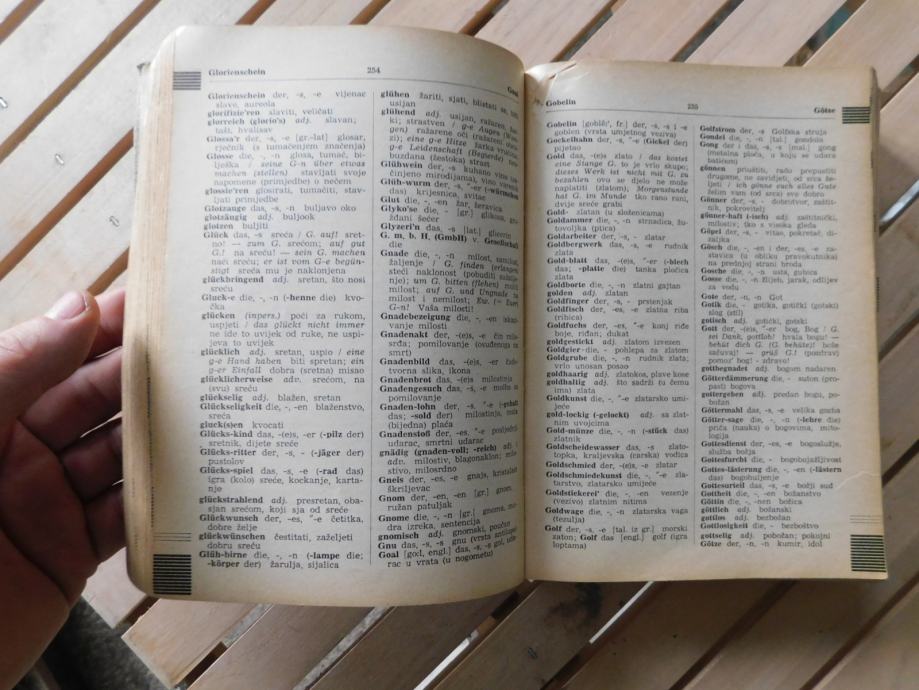 Glorienschein
254
Glorienschein der, -s, -e vijenac
slave, aureola
glorifizie'ren slaviti, veličati
glorreich (glorio's) adj. slavan;
taši, hvalisav
Glossa'r das, -s, -e [gr.-lat] glosar,
rječnik (s tumačenjem značenja)
Glosse die, -, -n glosa, tumač, bi-
lješka / seine G-n über etwas
machen (stellen) stavljati svoje
napomene (primjedbe) o nečem
glossie'ren glosirati, tumačiti, stav-
ljati primjedbe
Glotzauge das, -s, -n buljavo oko
glotzäugig adj. buljook
glotzen buljiti
Glück das, -s sreća / G. auf! sret-
no! — zum G. srećom; auf gut
G.! na sreću! — sein G. machen
naći sreću; er ist vom G-e begün-
stigt sreća mu je naklonjena
glückbringend adj. sretan, što nosi
sreću
Gluck-e die, -, -n (-henne die) kvo-
čka
glücken (inpers.) poći za rukom,
uspjeti / das glückt nicht immer
ne ide to uvijek od ruke, ne uspi-
jeva to uvijek
glücklich adj. sretan, uspio / eine
g-e Hand haben biti spretan; ein
g-er Einfall dobra (sretna) misao
glücklicherweise adv. srećom, na
(svu) sreću
glückselig adj. blažen, sretan
Glückseligkeit die, -, -en blaženstvo,
sreća
gluck(s)en kvocati
Glücks-kind das, -(e)s, -er (-pilz der)
sretnik, dijete sreće
Glücks-ritter der, -s, - (-jäger der)
pustolov
Glücks-spiel das, -s, -e (-rad das)
igra (kolo) sreće, kockanje, karta-
nje
glückstrahlend adj. presretan, oba-
sjan srećom, koji sja od sreće
Glückwunsch der, -es, "-e čestitka,
dobre želje
glückwünschen čestitati, zaželjeti
dobru sreću
Glüh-birne die, -, -n (-lampe die;
-körper der) žarulja, sijalica
glühen žariti, sjati, blistati se,
usijan
glühend adj. usijan, ražaren,
ki; strastven / g-e Augen
gen) ražarene oči
zi); eine g-e Hitze žarka
g-e Leidenschaft (Begierde)
buzdana (žestoka) strast
Glühwein der, -s kuhano vino
činjeno mirodijama), vino
Glüh-wurm der, -s, "-er
das) krijesnica, svitac
Glut die, -, -en žar, žeravica
Glyko'se die, - [gr.] glikoza,
ždani šećer
Glyzeri'n das, -s [lat.] glicerin
G. m. b. H. (GmbH) v. Gesellschaft
die
Gnade die, -, -n milost,
žaljenje / G. finden (erlangen
steći naklonost (pobuditi
nje); um G. bitten (flehen)
milost; auf G. und Ungnade
milost i nemilost; Ew. (= Euer
G-n! Vaša Milosti!
Gnadebezeigung die, -, -en iskaz-
vanje milosti
Gnadenakt der, -(e)s, -e čin milo-
srđa; pomilovanje (osuđenoga na
smrt)
Gnadenbild das, -(e)s, -er čudo-
tvorna slika, ikona
Gnadenbrot das, -(e)s milostinja
Gnadengesuch das, -s, -e molba za
pomilovanje
Gnaden-lohn der, -s, "-e (-gehalt
das; -sold der) milostinja, mala
(bijedna) plaća
Gnadenstoß der, -es, "-e posljednji
udarac, smrtni udarac
gnädig (gnaden-voll; -reich) adj. i
adv. milostiv, blagonaklon; milo-
stivo, milosrdno
Gneis der, -es, -e gnajs, kristalni
škriljevac
Gnom der, -en, -en [gr.] gnom,
ružan patuljak
Gnome die, -, -n [gr.] gnoma, mu-
dra izreka, sentencija
gnomisch adj. gnomski, poučan
Gnu das, -s, -s gnu (vrsta antilope)
Goal [gocl, engl.] das, -s, -s gol, uda-
rac u vrata (u nogometu)
Gobelin
255
Götze
Gobelin [goblẽ', fr.] der, -s, -s i -e
gobien (vrsta umjetnog veziva)
Gockelhahn der, -s, "-e (Gickel der)
pijetao
Gold das, -(e)s zlato / das kostet
eine Stange G. to je vrlo skupo;
dieses Werk ist nicht mit G. zu
bezahlen ovo se djelo ne može
naplatiti (zlatom); Morgenstunde
hat G. im Munde tko rano rani,
dvije sreće grabi
Gold- zlatan (u složenicama)
Goldammer die, -, -n strnadica, žu-
tovoljka (ptica)
Goldarbeiter der, -s, - zlatar
Goldbergwerk das, -s, -e rudnik
zlata
Gold-blatt das, -(e)s, "-er (-blech
das; -platte die) tanka pločica
zlata
Goldborte die, -, -n zlatni gajtan
golden adj. zlatan
Goldfinger der, -s, - prstenjak
Goldfisch der, -es, -e zlatna riba
(ribica)
Goldfuchs der, -es, "-e konj riđe
boje, riđan; dukat
goldgestickt adj. zlatom izvezen
Goldgier-die, - pohlepa za zlatom
Goldgrube die, -, -n rudnik zlata;
vrlo unosan posao
goldhaarig adj. zlatokos, plave kose
goldhaltig adj. što sadrži (u čemu
ima) zlata
Goldkunst die, -, "-e zlatarsko umi-
jeće
gold-lockig (-gelockt) adj. sa zlat-
nim uvojcima
Gold-münze die, -, -n (-stück das)
zlatnik
Goldscheidewasser das, -s zlato-
topka, kraljevska (carska) vodica
Goldschmied der, -(e)s, -e zlatar
Goldschmiedekunst die, -, "-e zla-
tarstvo, zlatarsko umijeće
Goldstickerei' die, -, -en vezenje
(vezivo) zlatnim nitima
Goldwage die, -, -n zlatarska vaga
(tezulja)
Golf der, -s, -e [tal. iz gr.] morski
zaton; Golf das [engl.] golf (igra
loptama)
Golfstrom der, -s Golfska struja
Gondel die, -, -n [tal.] gondola
Gong der i das, -s, -s [mal.] gong
(metalna ploča, u koju se udara
batićem)
gönnen priuštiti, rado prepustiti
drugome, ne zavidjeti, od srca že-
ljeti / ich gönne euch alles Gute
želim vam (od srca) sve dobro
Gönner der, -s, - dobrotvor, zaštit-
nik, pokrovitelj
gönner-haft (-isch) adj. zaštitnički,
milostiv; tko s visoka gleda
Göpel der, -s, - vitao, pokretač, di-
zaljka
Gösch die, -, -en i der, -es, -e za-
stavica (u obliku pravokutnika)
na prednjoj strani broda
Gosche die, -, -n usta, gubica
Gosse die, -, -n žlijeb, jarak, odlijev
za vodu
Gote der, -n, -n Got
Gotik die, - gotika, gotički (gotski)
slog (stil)
gotisch adj. gotički, gotski
Gott der, -(e)s, "-er bog, Bog / G.
sei Dank, gottlob! hvala bogu! —
behüt dich G. (G. behüte)! bože
sačuvaj! — grüß G.! (pozdrav)
pomoz' bog! - zdravo!
gottbegnadet adj. bogom nadaren
Götterdämmerung die, - suton (pro-
past) bogova
gottergeben adj. predan bogu, po-
božan
Göttermahl das, -s, -e velika gozba
Götter-sage die, -, -n (-lehre die)
priča (nauka) o bogovima, mito-
logija
Gottesdienst der, -es, -e bogoslužje,
služba božja
Gottesfurcht die, - bogobojažljivost
Gottes-lästerung die, -, -en (-lästern
das) bogohuljenje
Gottesurteil das, -s, -e božji sud
Gottheit die, -, -en božanstvo
Göttin die, -, -nen božica
göttlich adj. božanski
gottlos adj. bezbožan
Gottlosigkeit die, - bezboštvo
gottselig adj. pobožan; pokojni
Götze der, -n, -n kumir, idol